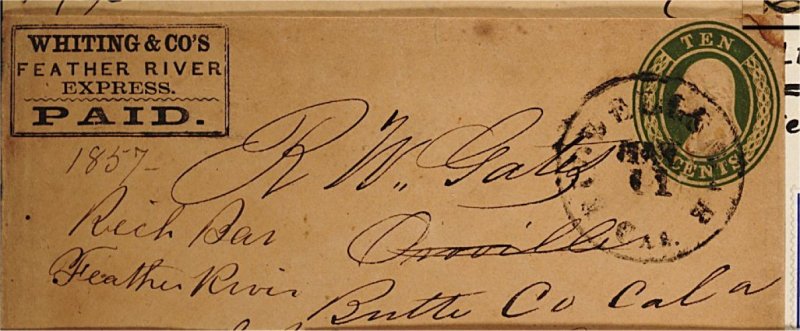 WHITING & CO'S
FEATHER RIVER
EXPRESS.
PAID.
TEN
CENTS
MAR
11
CAL.
1857-
R W. Gates
Rich Bar
Oroville
Feather River
Butte Co Cal a